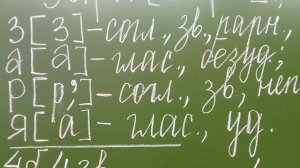 З [З] – согл., зв., парн.,
а [а] – глас., безуд.;
Р [р,'] – согл., зв., неп
Я [а́] – глас., уд.